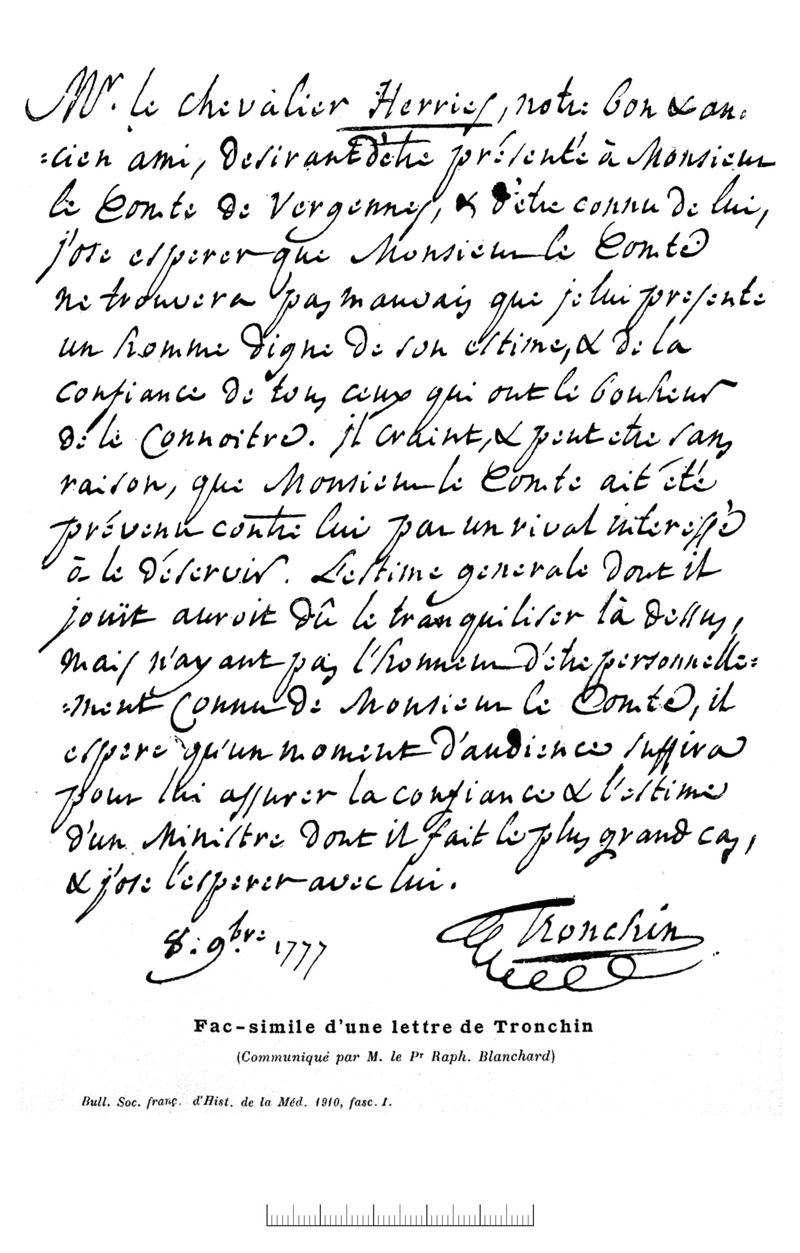 Mr. le chevalier Herries, notre bon & an:
:cien ami, desirant d'être présenté à Monsieur
le Comte de Vergennes, & d'etre connu de lui,
j'ose esperer que Monsieur le Comte
ne trouvera pas mauvais que je lui presente
un homme digne de son estime, & de la
confiance de tous ceux qui ont le bonheur
de le Connoitre. il craint, & peut etre sans
raison, que Monsieur le Comte ait été
prévenu contre lui par un rival interessé
à le déservir. L'estime generale dont il
jouït auroit dû le tranquiliser là dessus,
mais n'ayant pas l'honneur d'être personnelle:
:ment Connu de Monsieur le Comte, il
espere qu'un moment d'audience suffira
pour lui assurer la confiance & l'estime
d'un Ministre dont il fait le plus grand cas,
& j'ose l'esperer avec lui.
8: 9bre: 1777
Tronchin
Fac-simile d'une lettre de Tronchin
(Communiqué par M. le Pr Raph. Blanchard)
Bull. Soc. franç. d'Hist. de la Méd. 1910, fasc. I.